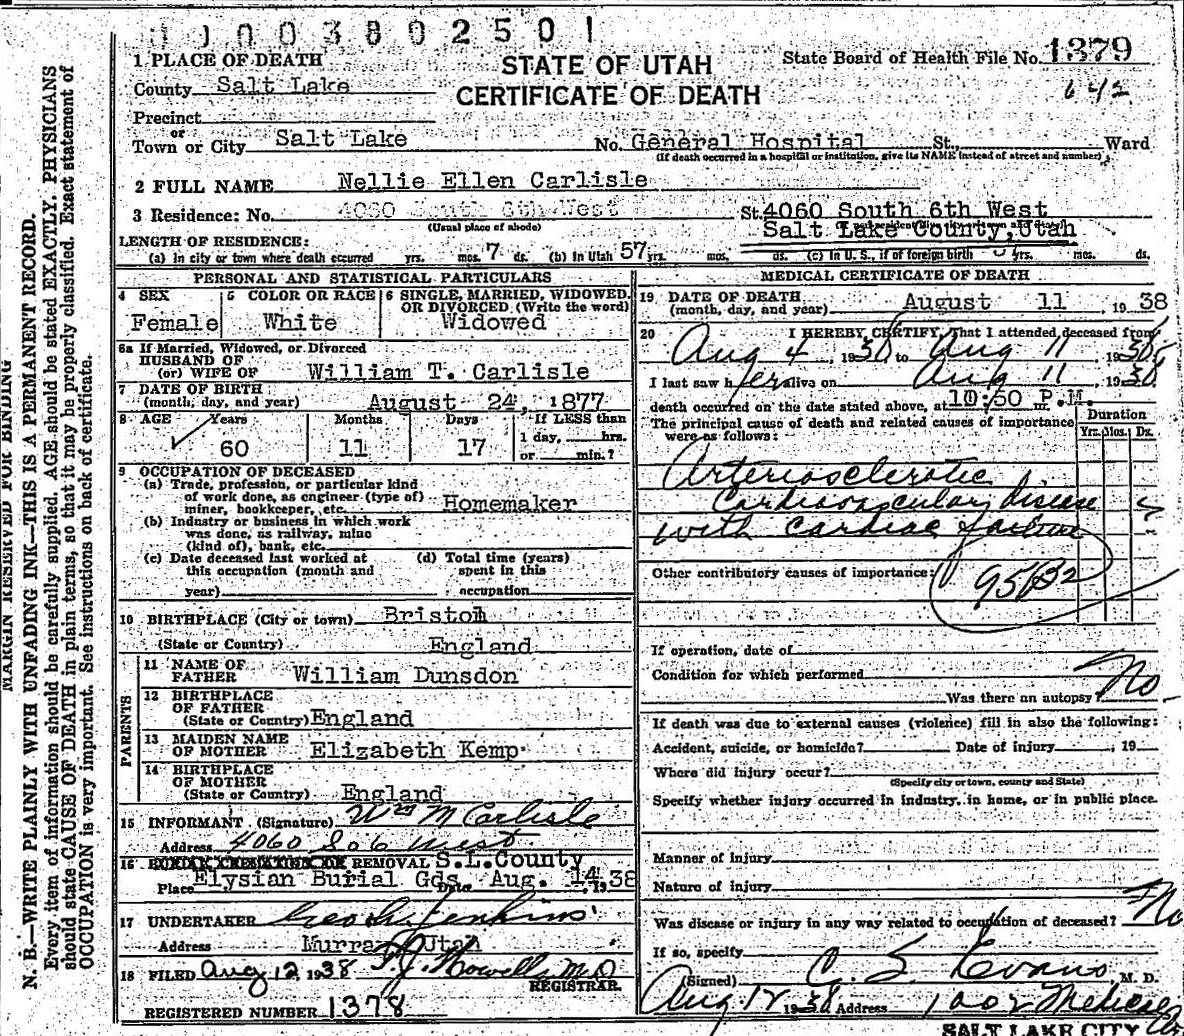 1 0 0 0 3 8 0 2 5 0 1
STATE OF UTAH
CERTIFICATE OF DEATH
State Board of Health File No. 1379
642
1 PLACE OF DEATH
County Salt Lake
Precinct
or
Town or City Salt Lake No. General Hospital St., Ward
(If death occurred in a hospital or institution, give its NAME instead of street and number)
2 FULL NAME Nellie Ellen Carlisle
3 Residence: No. 4060 South 6th West St. 4060 South 6th West
(Usual place of abode)
Salt Lake County, Utah
LENGTH OF RESIDENCE:
(a) In city or town where death occurred yrs. mos. 7 ds. (b) In Utah 57 yrs. mos. ds. (c) In U. S., if of foreign birth yrs. mos. ds.
PERSONAL AND STATISTICAL PARTICULARS
4 SEX
Female
5 COLOR OR RACE
White
6 SINGLE, MARRIED, WIDOWED,
OR DIVORCED (Write the word)
Widowed
6a If Married, Widowed, or Divorced
HUSBAND OF
(or) WIFE OF William T. Carlisle
7 DATE OF BIRTH
(month, day, and year) August 24, 1877
8 AGE Years Months Days If LESS than
60 11 17 1 day, hrs.
or min.?
9 OCCUPATION OF DECEASED
(a) Trade, profession, or particular kind
of work done, as engineer (type of)
miner, bookkeeper, etc. Homemaker
(b) Industry or business in which work
was done, as railway, mine
(kind of), bank, etc.
(c) Date deceased last worked at
this occupation (month and
year)
(d) Total time (years)
spent in this
occupation
10 BIRTHPLACE (City or town) Bristol
(State or Country) England
PARENTS
11 NAME OF
FATHER William Dunsdon
12 BIRTHPLACE
OF FATHER
(State or Country) England
13 MAIDEN NAME
OF MOTHER Elizabeth Kemp
14 BIRTHPLACE
OF MOTHER
(State or Country) England
15 INFORMANT (Signature) Wm M Carlisle
Address 4060 So 6 West
16 BURIAL CREMATION OR REMOVAL S.L.County
Place Elysian Burial Gds Date Aug. 14, 1938
17 UNDERTAKER Geo L. Jenkins
Address Murray Utah
18 FILED Aug 12, 1938 T. J. Howells M.D
REGISTRAR.
REGISTERED NUMBER 1378
MEDICAL CERTIFICATE OF DEATH
19 DATE OF DEATH
(month, day, and year) August 11, 1938
20 I HEREBY CERTIFY, That I attended deceased from
Aug 4, 1938 to Aug 11, 1938
I last saw her alive on Aug 11, 1938
death occurred on the date stated above, at 10:50 P.M. m.
The principal cause of death and related causes of importance
were as follows:
Duration
Yrs. Mos. Ds.
Arteriosclerotic
Cardiovascular disease ?
with cardiac failure "
Other contributory causes of importance:
95B2
If operation, date of
Condition for which performed
Was there an autopsy? No
If death was due to external causes (violence) fill in also the following:
Accident, suicide, or homicide? Date of injury , 19
Where did injury occur?
(Specify city or town, county and State)
Specify whether injury occurred in industry, in home, or in public place.
Manner of injury
Nature of injury
Was disease or injury in any way related to occupation of deceased? No
If so, specify
(Signed) C. S. Evans M. D.
Aug 12 1938 Address 1002 Medical
SALT LAKE CITY
MARGIN RESERVED FOR BINDING
N. B.—WRITE PLAINLY WITH UNFADING INK—THIS IS A PERMANENT RECORD.
Every item of information should be carefully supplied. AGE should be stated EXACTLY. PHYSICIANS
should state CAUSE OF DEATH in plain terms, so that it may be properly classified. Exact statement of
OCCUPATION is very important. See instructions on back of certificate.